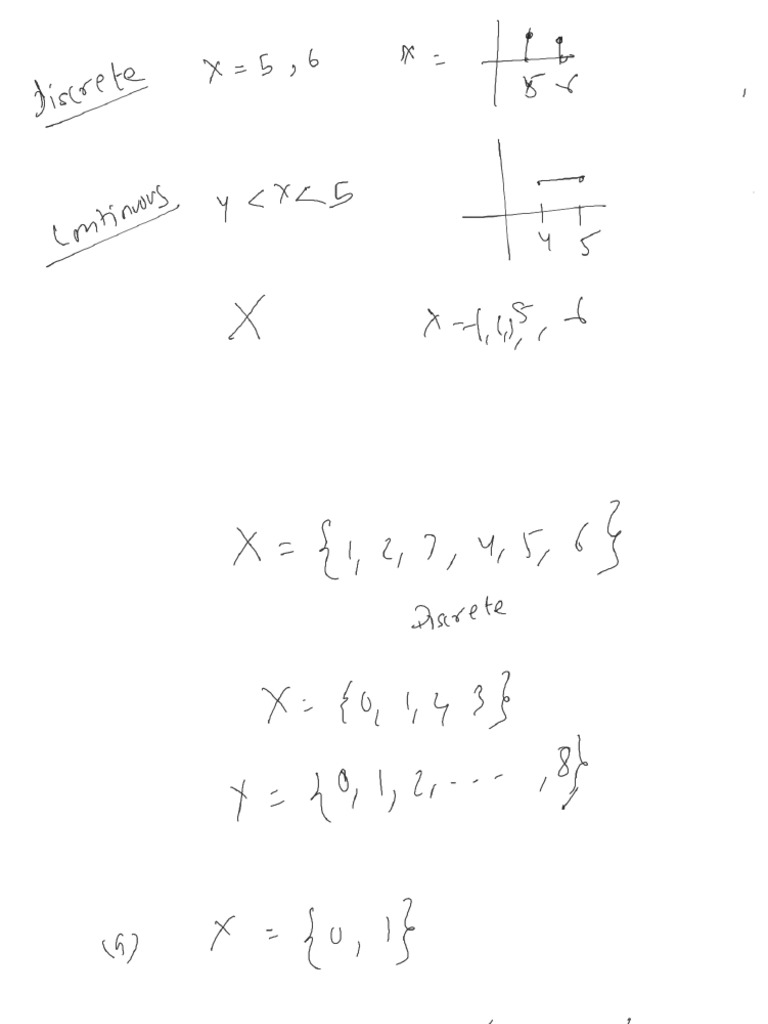 Discrete X = 5, 6 x =
5 6
Continuous 4 < x < 5
4 5
X x =
X = {1, 2, 3, 4, 5, 6}
Discrete
X = {0, 1, 2, 3}
Y = {0, 1, 2, ..., 8}
(a) X = {0, 1}